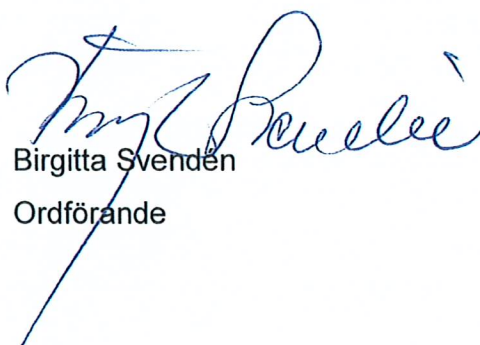 Birgitta Svendén
Ordförande